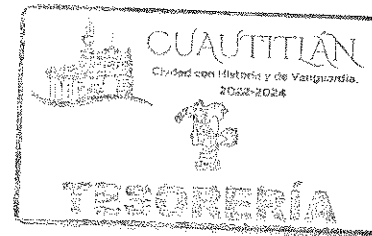 CUAUTITLÁN
Ciudad con Historia y de Vanguardia.
2022-2024
TESORERÍA